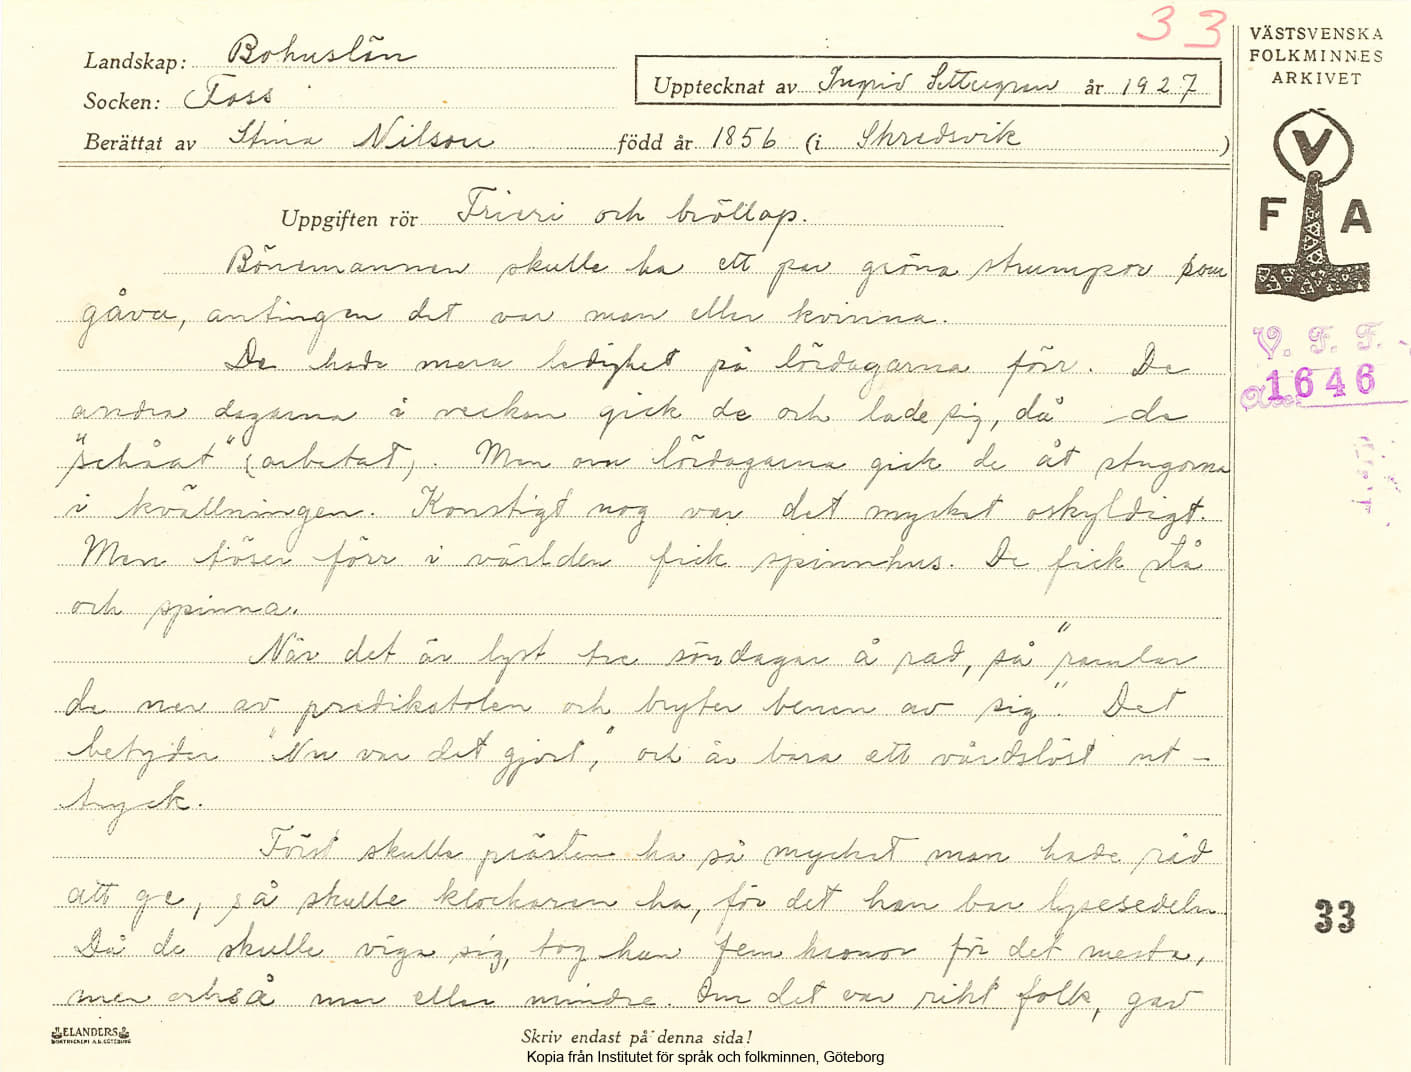 33
VÄSTSVENSKA
FOLKMINNES
ARKIVET
Landskap: Bohuslän
Upptecknat av Ingrid Settergren år 1927
Socken: Foss
Berättat av Stina Nilson född år 1856 (i Skredsvik )
V
F A
Uppgiften rör Frieri och bröllop.
Bönemannen skulle ha ett par gröna strumpor som
gåva, antingen det var man eller kvinna.
De hade mera ledighet på lördagarna förr. De
andra dagarna i veckan gick de och lade sig, då de
"schåat" (arbetat). Men om lördagarna gick de åt stugorna
i kvällningen. Konstigt nog var det mycket oskyldigt.
Men töser förr i världen fick spinnhus. De fick stå
och spinna.
När det är lyst tre söndagar å rad, så "ramlar
de ner av predikstolen och bryter benen av sig". Det
betyder "Nu var det gjort," och är bara ett vårdslöst ut-
tryck.
Först skulle prästen ha så mycket man hade råd
att ge, så skulle klockaren ha, för det han bar lysesedeln.
Då de skulle viga sig, tog han fem kronor för det mesta,
men också mer eller mindre. Om det var rikt folk, gav
V. F. F.
Acc. 1646
33
ELANDERS
BOKTRYCKERI A.B. GÖTEBORG
Skriv endast på denna sida!
Kopia från Institutet för språk och folkminnen, Göteborg